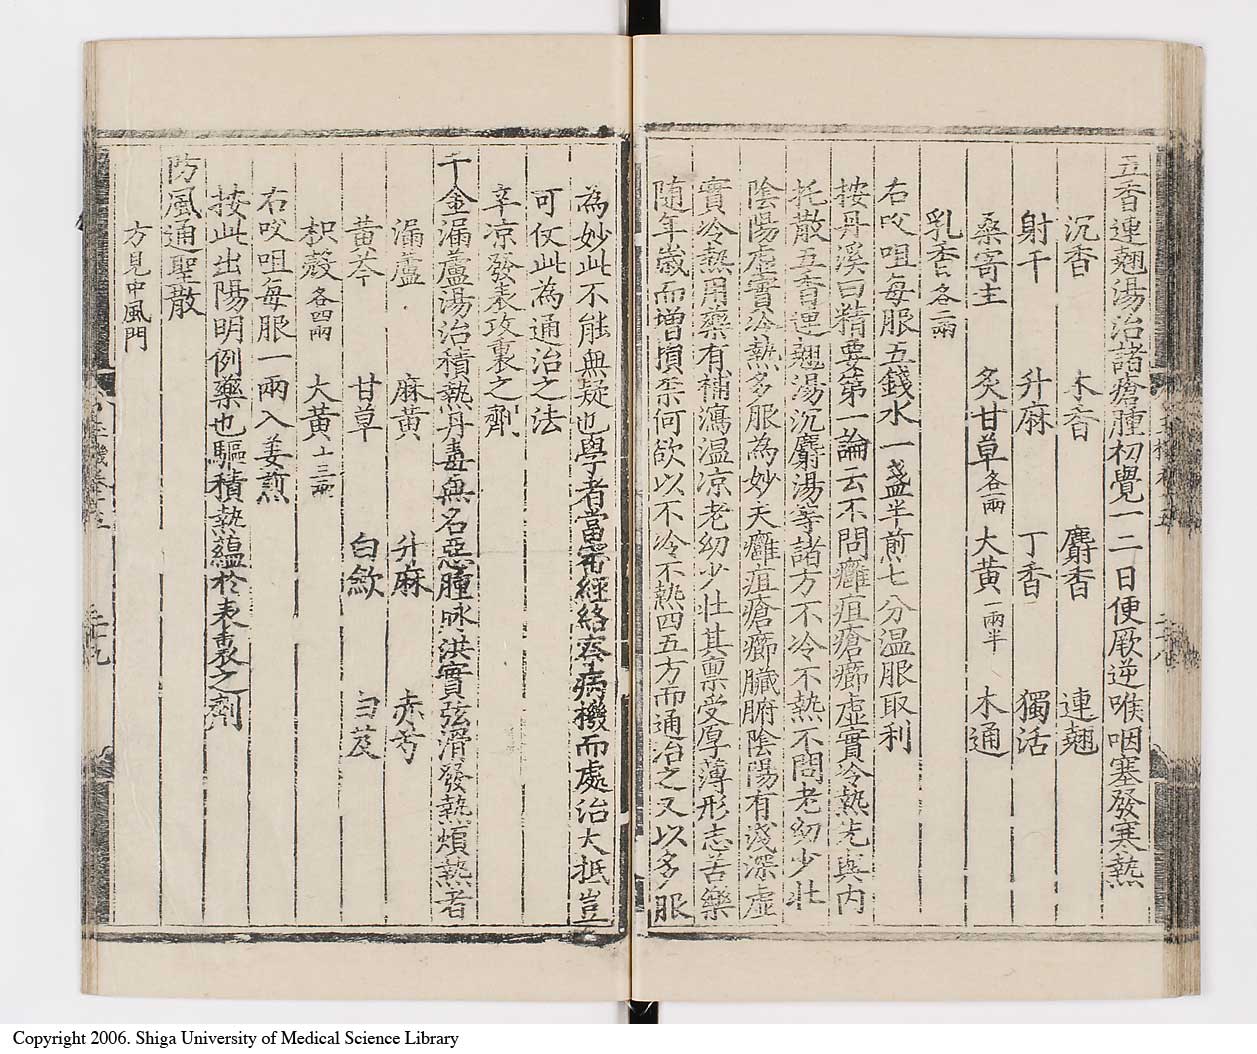 五香連翹湯治諸瘡腫初覺一二日便厥逆喉咽塞發寒熱
沉香 木香 麝香 連翹
射干 升麻 丁香 獨活
桑寄生 炙甘草各二兩 大黃一兩半 木通
乳香各二兩
右㕮咀每服五錢水一盞半煎七分温服取利
按丹溪曰精要第一論云不問癰疽瘡癤虛實冷熱先與内
托散五香連翹湯沉麝湯等諸方不冷不熱不問老幼少壯
陰陽虛實冷熱多服為妙夫癰疽瘡癤臟腑陰陽有淺深虛
實冷熱用藥有補瀉温凉老幼少壯其禀受厚薄形志苦樂
隨年歲而增損柰何欲以不冷不熱四五方而通治之又以多服
為妙此不能無疑也學者當審經絡察病機而處治大抵豈
可仗此為通治之法
辛凉發表攻裏之劑
千金漏蘆湯治積熱丹毒無名惡腫脉洪實弦滑發熱煩熱者
漏蘆 麻黃 升麻 赤芍
黃芩 甘草 白歛 白芨
枳殼各四兩 大黃上三兩
右㕮咀每服一兩入姜煎
按此出陽明例藥也驅積熱蘊於表裏之劑
防風通聖散
方見中風門
Copyright 2006. Shiga University of Medical Science Library